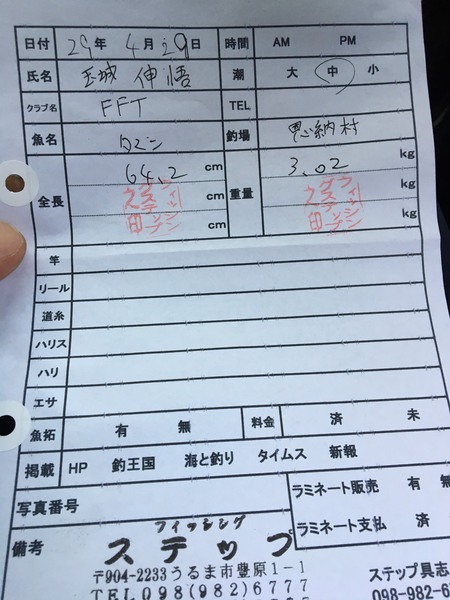 日付 29年 4月 29日 時間 AM PM
氏名 玉城 伸悟 潮 大 中 小
クラブ名 FFT TEL
魚名 タマン 釣場 恩納村
全長 64.2 cm 重量 3.02 kg
cm kg
cm kg
竿
リール
道糸
ハリス
ハリ
エサ
魚拓 有 無 料金 済 未
掲載 HP 釣王国 海と釣り タイムス 新報
写真番号 ラミネート販売 有 無
ラミネート支払 済
備考 フィッシング
ステップ
〒904-2233うるま市豊原1-1 ステップ具志
TEL098(982)6777 098-982-6